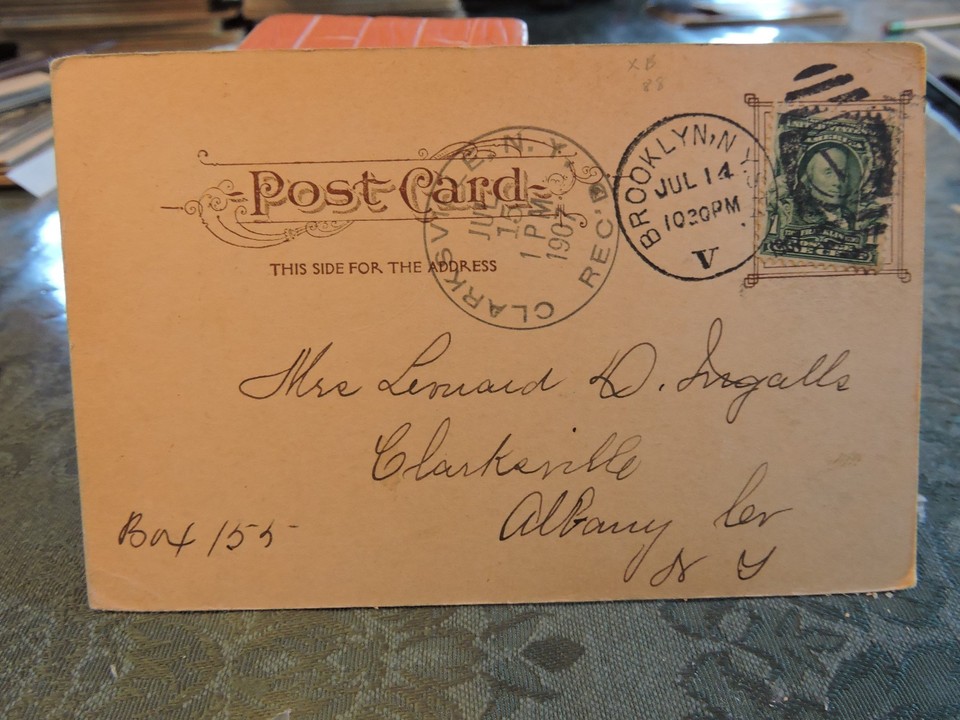 XB
88
Post Card
THIS SIDE FOR THE ADDRESS
CLARKSVILLE, N. Y.
JUL
15
1 PM
1907
REC'D
BROOKLYN, N.Y.
JUL 14
1030PM
V
UNITED STATES
AMERICA
Mrs Leonard D. Ingalls
Clarksville
Albany Co
N Y
Box 155